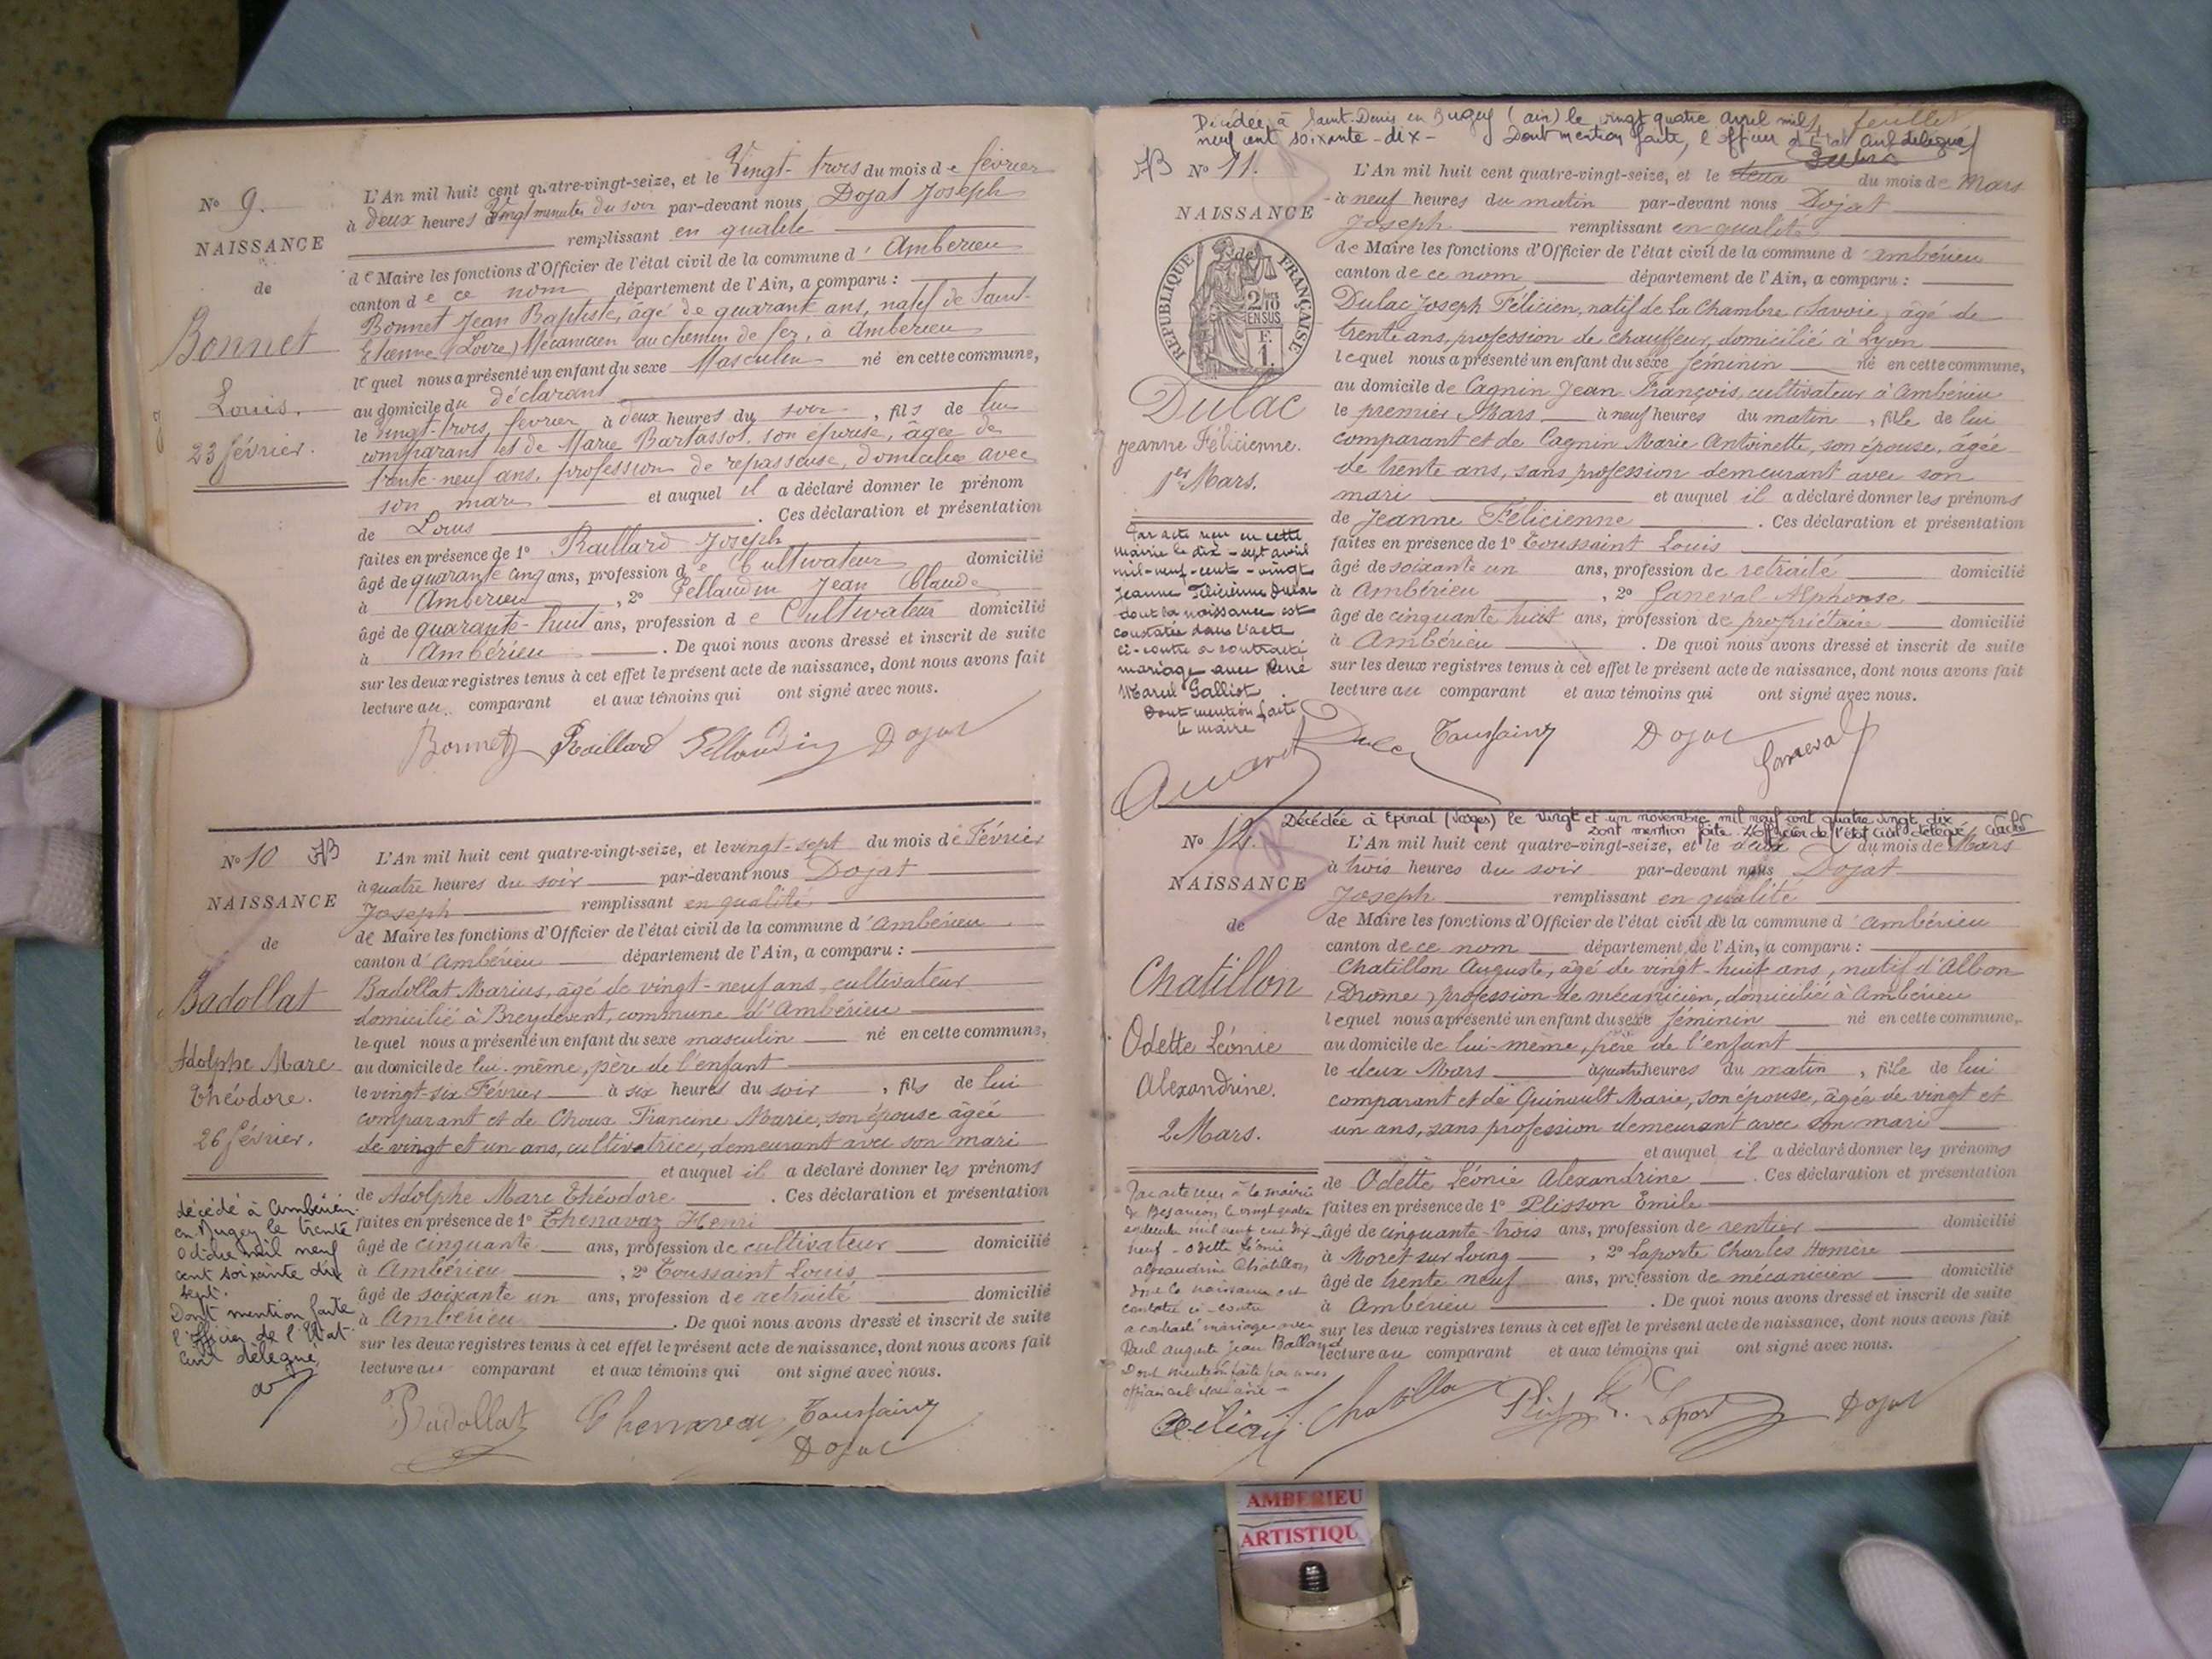 N° 9.
NAISSANCE
de
Bonnet
Louis.
23 février.
L'An mil huit cent quatre-vingt-seize, et le Vingt-trois du mois de février
à deux heures vingt minutes du soir par-devant nous Dojat Joseph
remplissant en qualité
de Maire les fonctions d'Officier de l'état civil de la commune d'Ambérieu
canton de ce nom département de l'Ain, a comparu :
Bonnet Jean Baptiste, âgé de quarante ans, natif de Saint-
Etienne (Loire) Mécanicien au chemin de fer, à Ambérieu
lequel nous a présenté un enfant du sexe Masculin né en cette commune,
au domicile du déclarant
le vingt-trois février à deux heures du soir, fils de lui
comparant et de Marie Bartassot, son épouse, âgée de
trente-neuf ans, profession de repasseuse, domiciliée avec
son mari et auquel il a déclaré donner le prénom
de Louis. Ces déclaration et présentation
faites en présence de 1° Raillard Joseph
âgé de quarante cinq ans, profession de Cultivateur domicilié
à Ambérieu, 2° Pellaudin Jean Claude
âgé de quarante-huit ans, profession de Cultivateur domicilié
à Ambérieu. De quoi nous avons dressé et inscrit de suite
sur les deux registres tenus à cet effet le présent acte de naissance, dont nous avons fait
lecture au comparant et aux témoins qui ont signé avec nous.
Bonnet Raillard Pellaudin Dojat
N° 10
NAISSANCE
de
Badollat
Adolphe Marc
Théodore.
26 février.
décédé à Ambérieu
en Bugey le trente
Octobre mil neuf
cent soixante dix
sept.
Dont mention faite
l'officier de l'Etat
Civil délégué,
L'An mil huit cent quatre-vingt-seize, et le vingt-sept du mois de Février
à quatre heures du soir par-devant nous Dojat
Joseph remplissant en qualité
de Maire les fonctions d'Officier de l'état civil de la commune d'Ambérieu
canton d'Ambérieu département de l'Ain, a comparu :
Badollat Marius, âgé de vingt-neuf ans, cultivateur
domicilié à Breydevent, commune d'Ambérieu
lequel nous a présenté un enfant du sexe masculin né en cette commune,
au domicile de lui-même, père de l'enfant
le vingt-six Février à six heures du soir, fils de lui
comparant et de Choux Francine Marie, son épouse âgée
de vingt et un ans, cultivatrice, demeurant avec son mari
et auquel il a déclaré donner les prénoms
de Adolphe Marc Théodore. Ces déclaration et présentation
faites en présence de 1° Thenavaz Henri
âgé de cinquante ans, profession de cultivateur domicilié
à Ambérieu, 2° Toussaint Louis
âgé de soixante un ans, profession de retraité domicilié
à Ambérieu. De quoi nous avons dressé et inscrit de suite
sur les deux registres tenus à cet effet le présent acte de naissance, dont nous avons fait
lecture au comparant et aux témoins qui ont signé avec nous.
Badollat Thenavaz Toussaint
Dojat
Décédée à Saint-Denis en Bugey (Ain) le vingt quatre avril mil feuillet
neuf cent soixante-dix - Dont mention faite, l'officier d'Etat Civil délégué
N° 11.
NAISSANCE
de
REPUBLIQUE FRANÇAISE
2/10 EN SUS
1 F.
Dulac
Jeanne Félicienne.
1er Mars.
Par acte reçu en cette
mairie le dix-sept avril
mil-neuf-cent-vingt
Jeanne Félicienne Dulac
dont la naissance est
constatée dans l'acte
ci-contre a contracté
mariage avec René
Marcel Galliot.
Dont mention faite.
le maire
L'An mil huit cent quatre-vingt-seize, et le deux du mois de Mars
à neuf heures du matin par-devant nous Dojat
Joseph remplissant en qualité
de Maire les fonctions d'Officier de l'état civil de la commune d'Ambérieu
canton de ce nom département de l'Ain, a comparu :
Dulac Joseph Félicien, natif de la Chambre (Savoie) âgé de
trente ans, profession de chauffeur, domicilié à Lyon
lequel nous a présenté un enfant du sexe féminin né en cette commune,
au domicile de Cagnin Jean François, cultivateur à Ambérieu
le premier Mars à neuf heures du matin, fille de lui
comparant et de Cagnin Marie Antoinette, son épouse, âgée
de trente ans, sans profession demeurant avec son
mari et auquel il a déclaré donner les prénoms
de Jeanne Félicienne. Ces déclaration et présentation
faites en présence de 1° Toussaint Louis
âgé de soixante un ans, profession de retraité domicilié
à Ambérieu, 2° Ganeval Alphonse
âgé de cinquante huit ans, profession de propriétaire domicilié
à Ambérieu. De quoi nous avons dressé et inscrit de suite
sur les deux registres tenus à cet effet le présent acte de naissance, dont nous avons fait
lecture au comparant et aux témoins qui ont signé avec nous.
Dulac Toussaint Dojat Ganeval
Décédée à Epinal (Vosges) le vingt et un novembre mil neuf cent quatre vingt dix
Dont mention faite. L'Officier de l'état civil délégué,
N° 12.
NAISSANCE
de
Chatillon
Odette Léonie
Alexandrine.
2 Mars.
Par acte reçu à la mairie
de Besançon, le vingt quatre
septembre mil neuf cent dix
neuf - Odette Léonie
Alexandrine Chatillon
dont la naissance est
constatée ci-contre
a contracté mariage avec
Paul Auguste Jean Balland
Dont mention faite par nous
L'An mil huit cent quatre-vingt-seize, et le deux du mois de Mars
à trois heures du soir par-devant nous Dojat
Joseph remplissant en qualité
de Maire les fonctions d'Officier de l'état civil de la commune d'Ambérieu
canton de ce nom département de l'Ain, a comparu :
Chatillon Auguste, âgé de vingt-huit ans, natif d'Albon
(Drôme) profession de mécanicien, domicilié à Ambérieu
lequel nous a présenté un enfant du sexe féminin né en cette commune,
au domicile de lui-même, père de l'enfant
le deux Mars à quatre heures du matin, fille de lui
comparant et de Guinault Marie, son épouse, âgée de vingt et
un ans, sans profession demeurant avec son mari
et auquel il a déclaré donner les prénoms
de Odette Léonie Alexandrine. Ces déclaration et présentation
faites en présence de 1° Plisson Emile
âgé de cinquante-trois ans, profession de rentier domicilié
à Moret sur Loing, 2° Laporte Charles Homère
âgé de trente neuf ans, profession de mécanicien domicilié
à Ambérieu. De quoi nous avons dressé et inscrit de suite
sur les deux registres tenus à cet effet le présent acte de naissance, dont nous avons fait
lecture au comparant et aux témoins qui ont signé avec nous.
Chatillon Laporte Dojat
AMBERIEU
ARTISTIQU